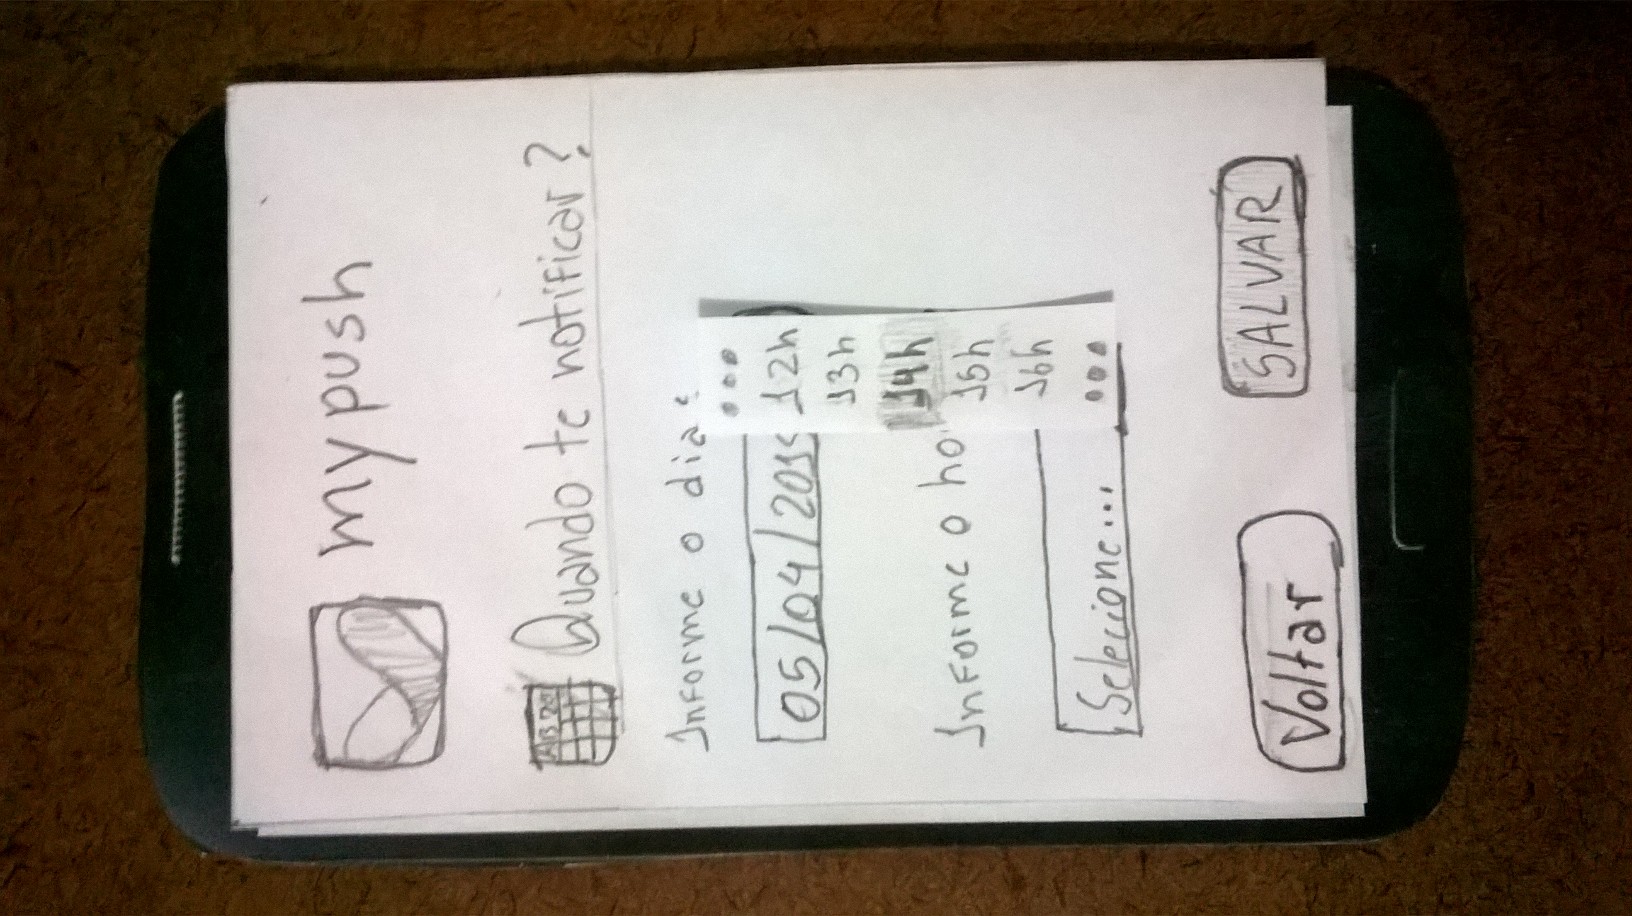 mypush
Quando te notificar?
Informe o dia:
05/04/201
Informe o ho
Selecione...
...
12h
13h
14h
15h
16h
...
Voltar
SALVAR